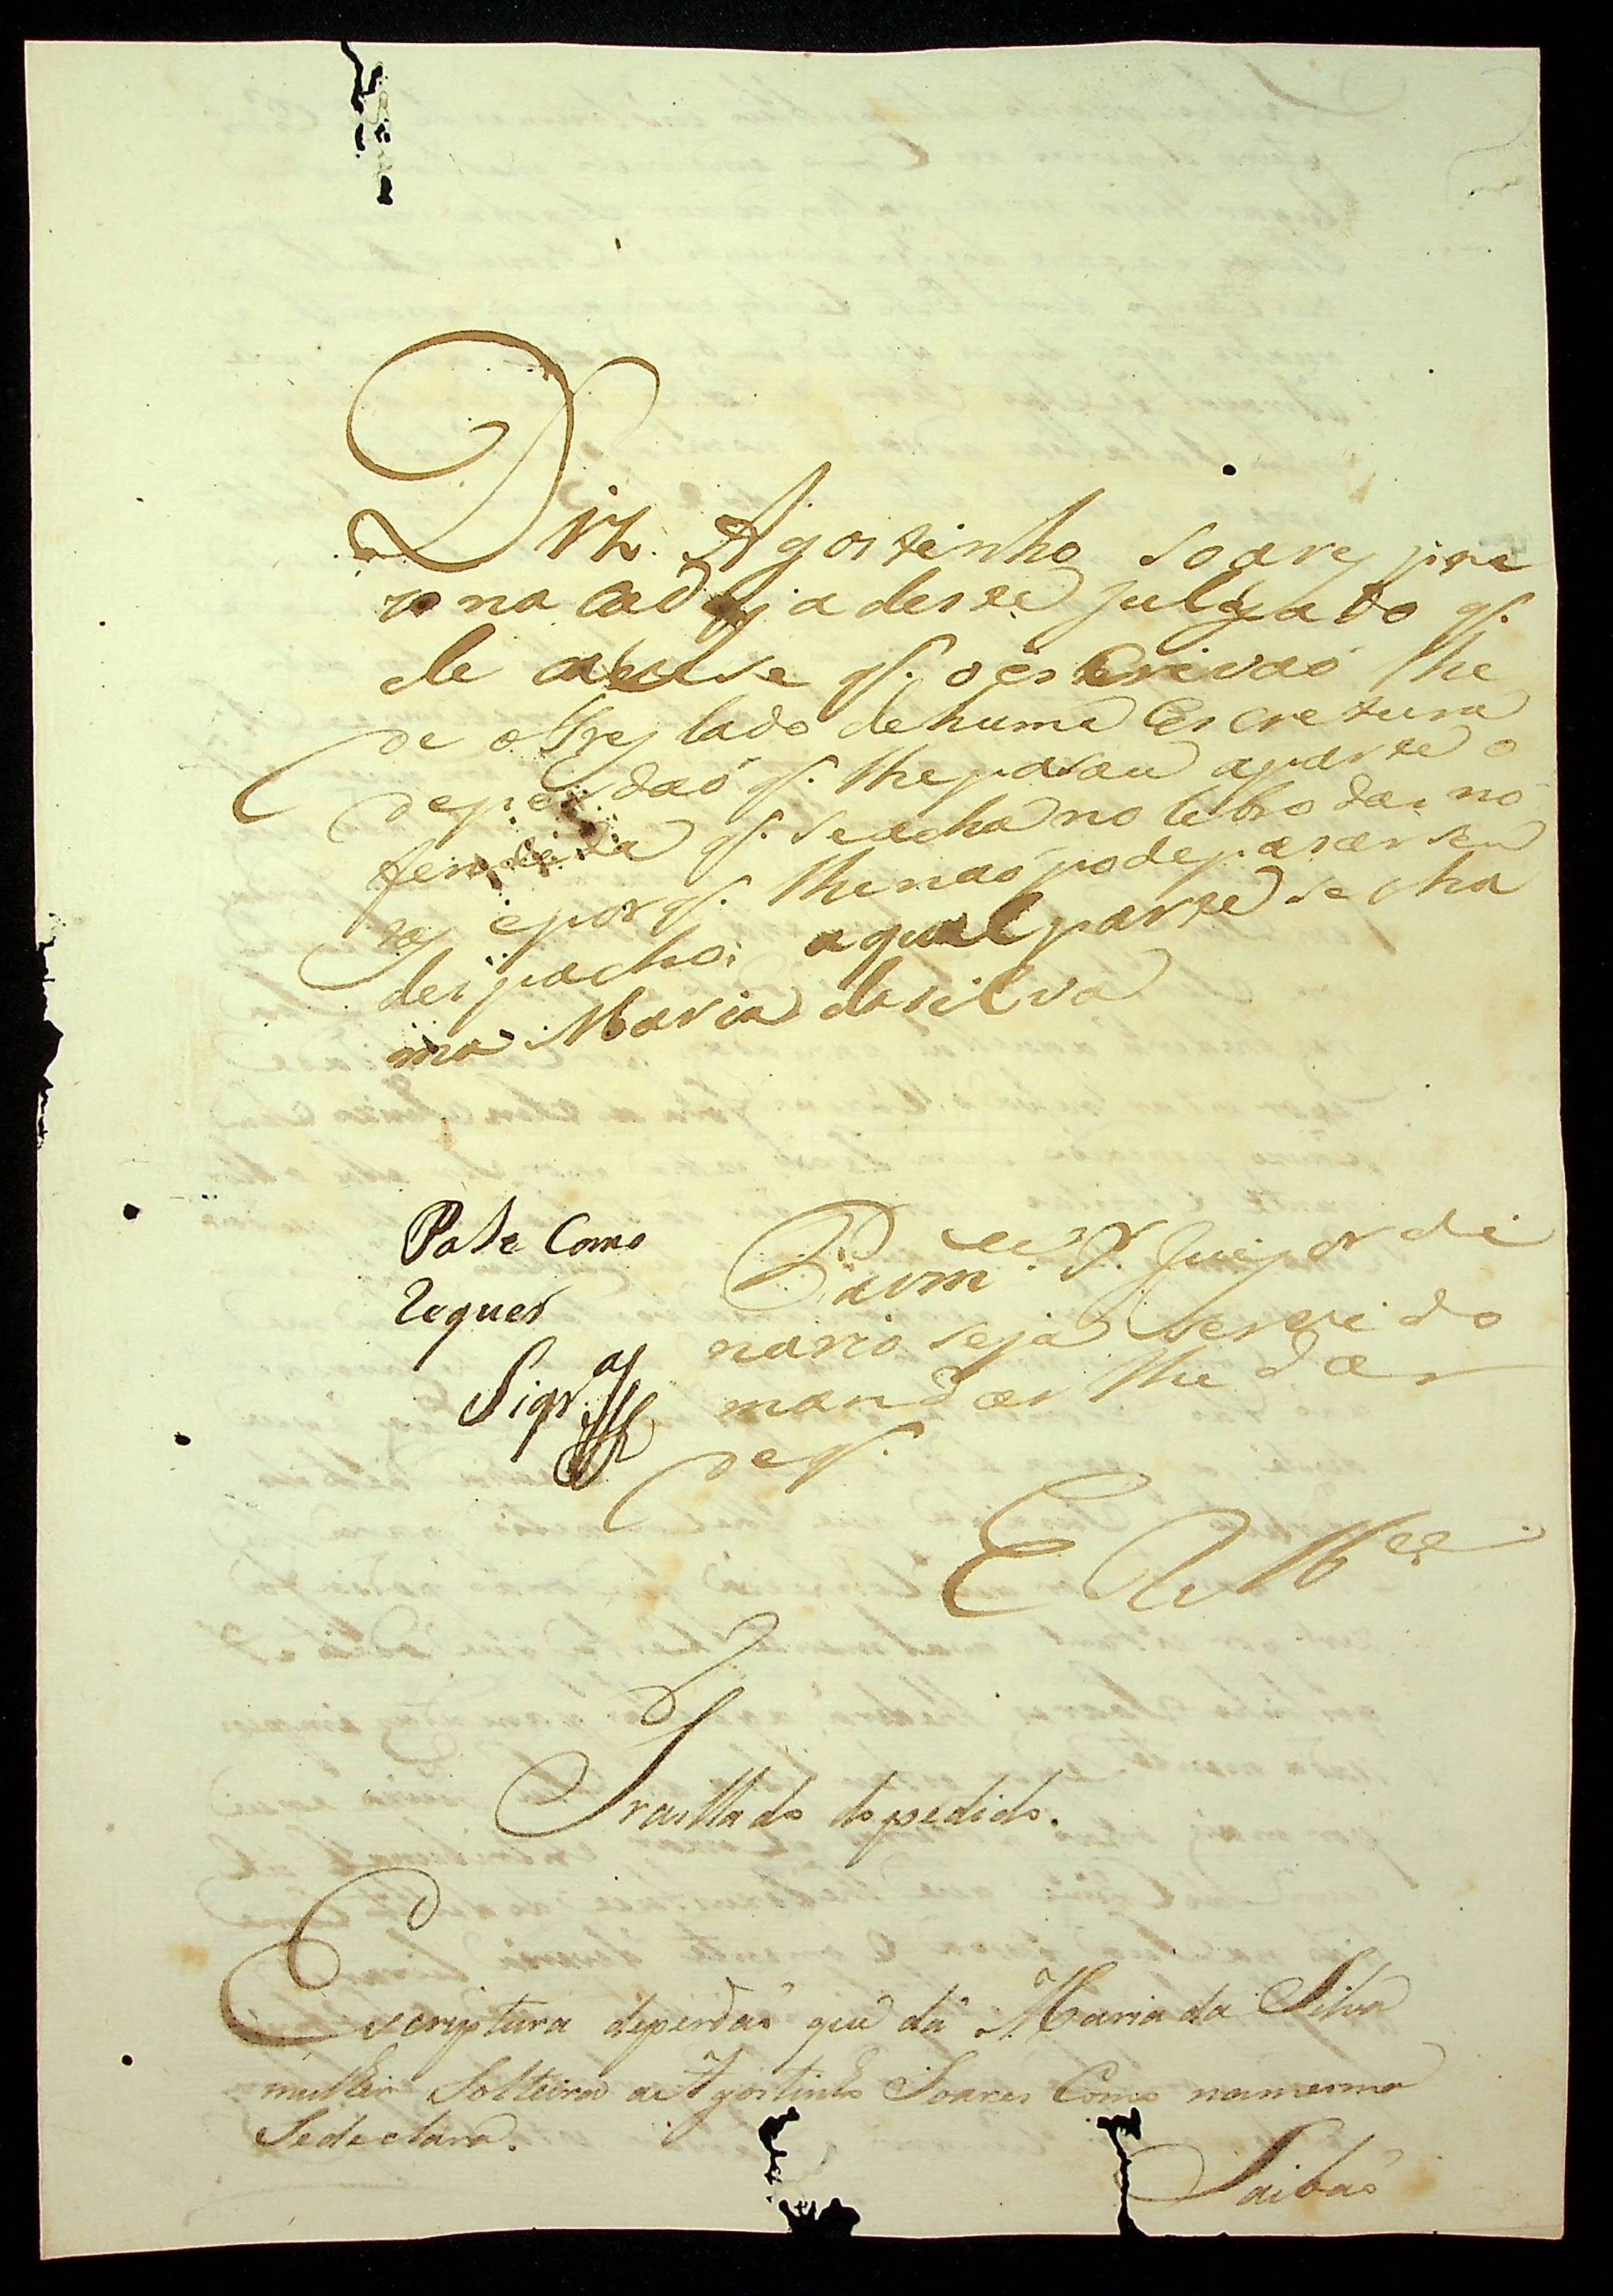 Diz Agostinho Soares pre
zo na cadeja deste Julgado q.
le q. o escrivaó lhe
de o treslado de huma Escretura
de perdaó q. lhe pasau aparte o
fendida q. se acha no libro das no
tas e por q. lhe naó pode pasar sem
despacho; a qual parte se cha
ma Maria da silva
Pase Como
requer
Siqr.ª
P a vm.ce S.r Juis ordi
nario seja servido
mandar lhe dar
de q.
E R M.ce
Trasllado do pedido.
Escriptura de perdaó que dá Maria da Silva
mulher Solteira a Agostinho Soares Como na mesma
Se declara.
Saibaó